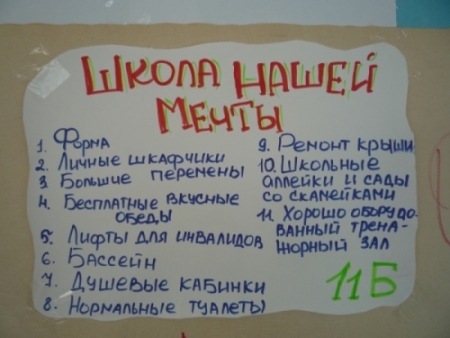 ШКОЛА НАШЕЙ
МЕЧТЫ
1. Форма
2. Личные шкафчики
3 Большие перемены
4. Бесплатные вкусные
обеды
5. Лифты для инвалидов
6. Бассейн
7. Душевые кабинки
8. Нормальные туалеты
9. Ремонт крыши
10. Школьные
аллейки и сады
со скамейками
11. Хорошо оборудо-
ванный трена-
жорный зал
11Б